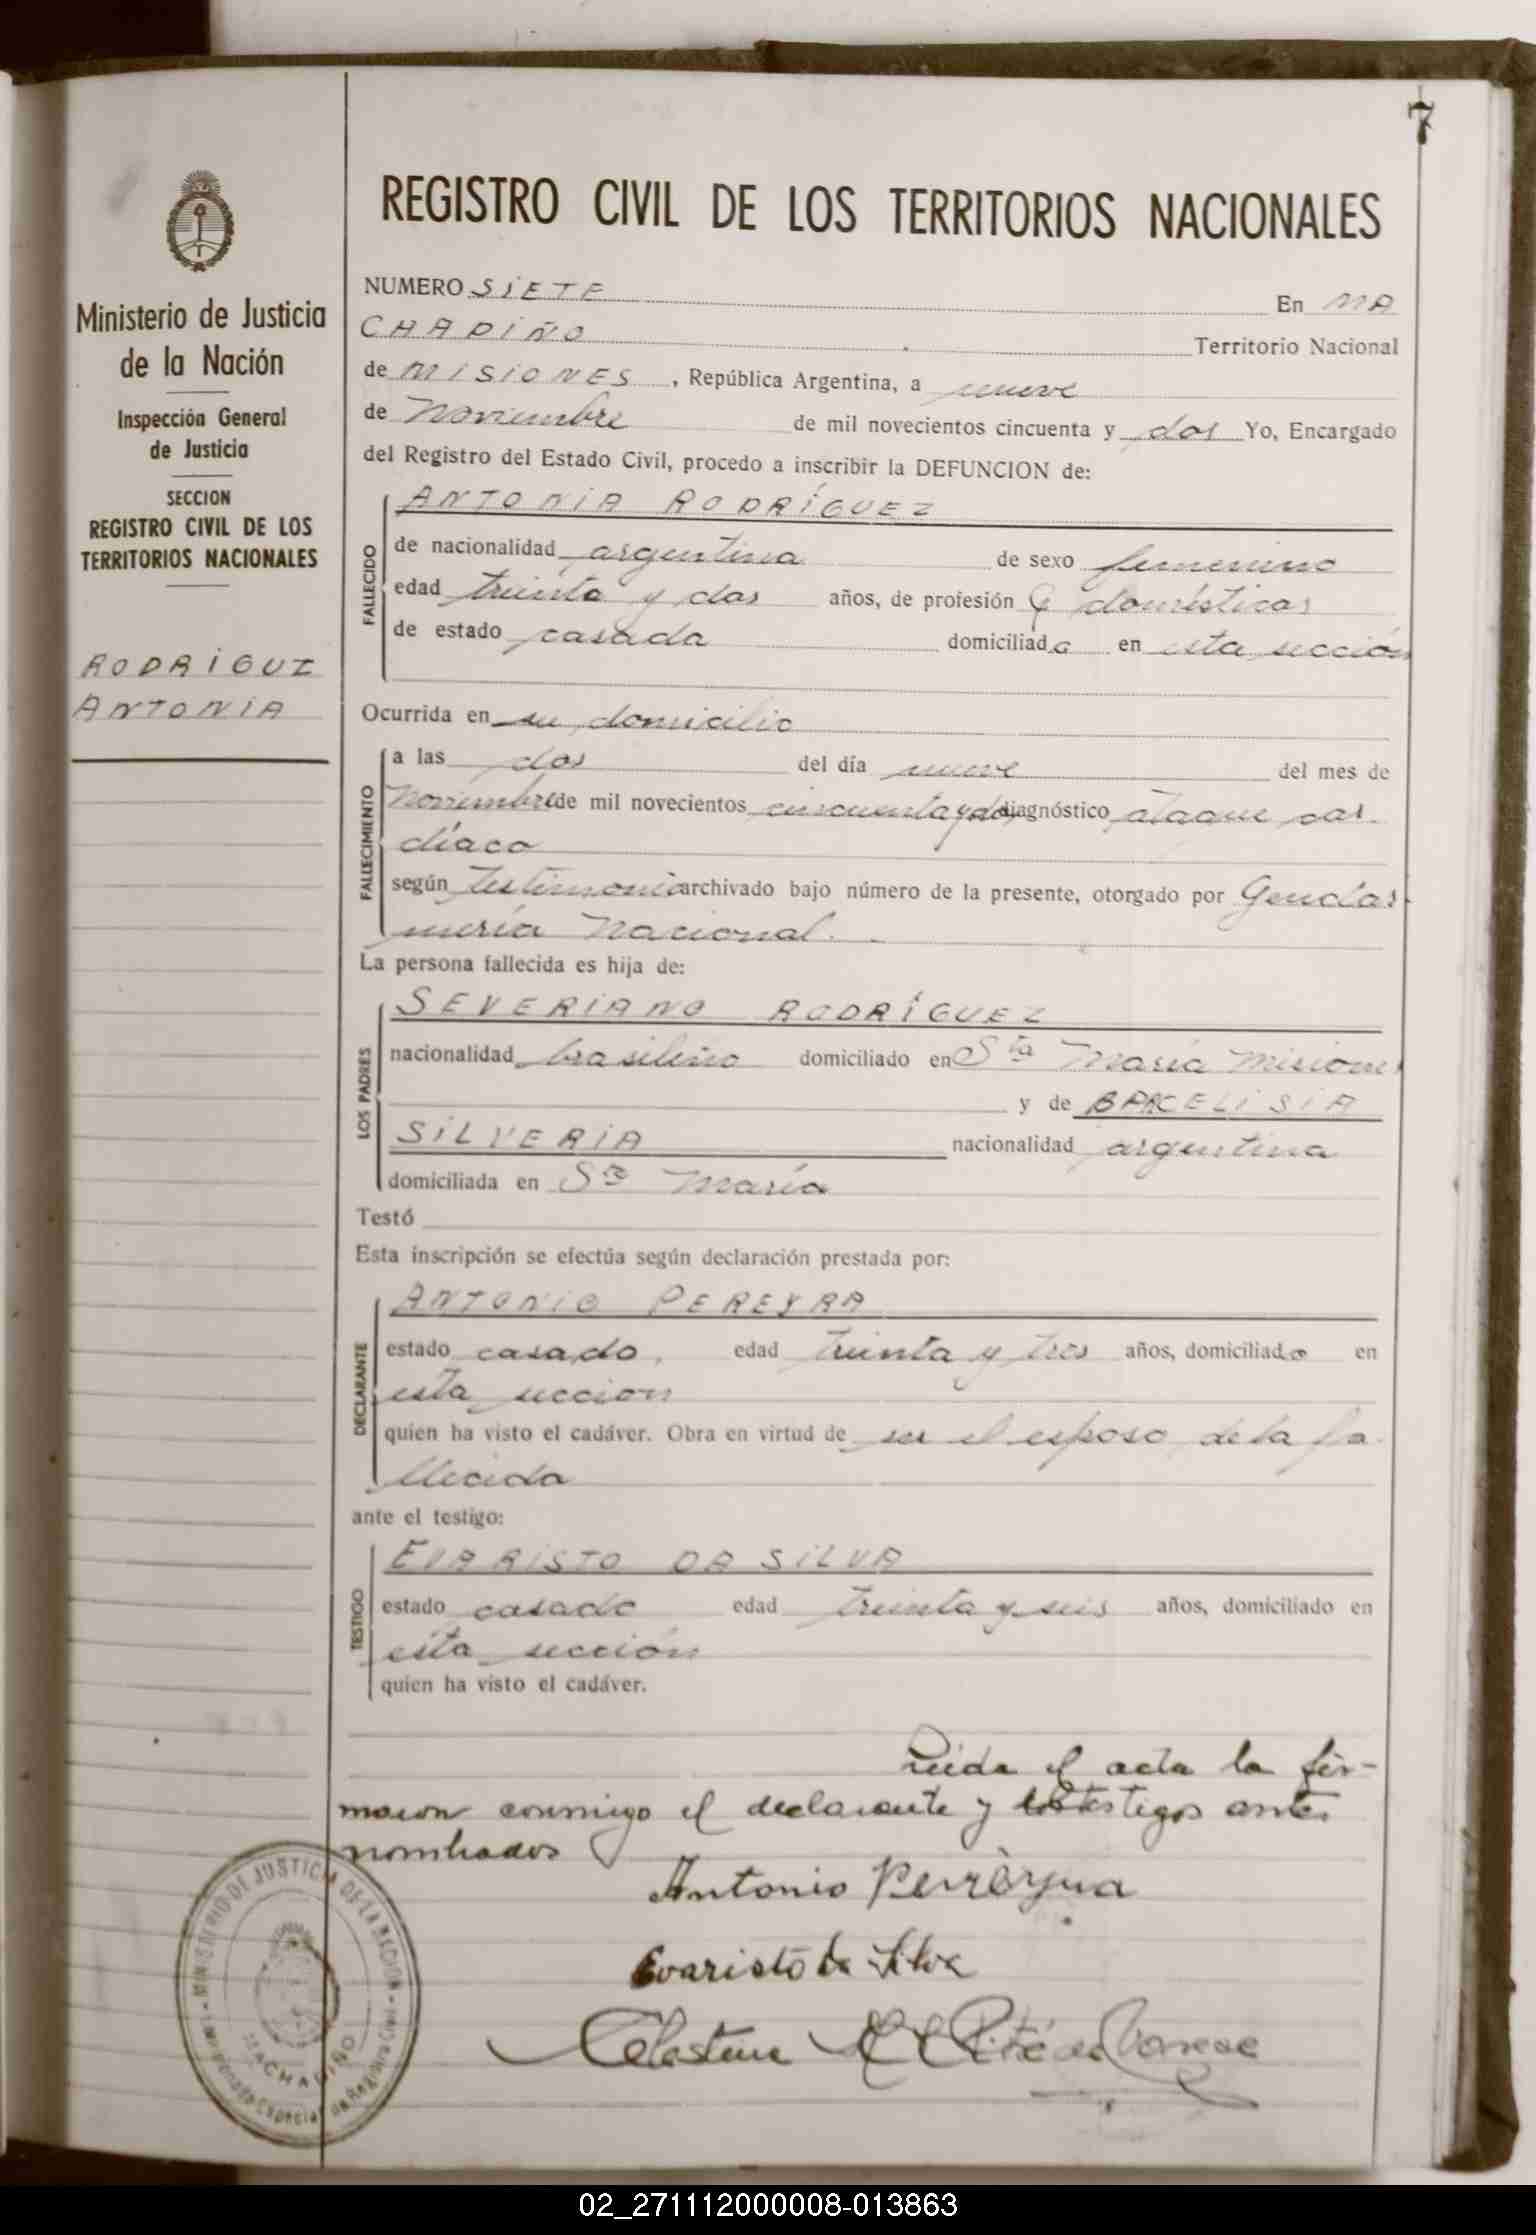 7
REGISTRO CIVIL DE LOS TERRITORIOS NACIONALES
Ministerio de Justicia
de la Nación
Inspección General
de Justicia
SECCION
REGISTRO CIVIL DE LOS
TERRITORIOS NACIONALES
RODRIGUZ
ANTONIA
NUMERO SIETE En MA
CHADIÑO Territorio Nacional
de MISIONES, República Argentina, a nueve
de Noviembre de mil novecientos cincuenta y dos Yo, Encargado
del Registro del Estado Civil, procedo a inscribir la DEFUNCION de:
FALLECIDO
ANTONIA RODRÍGUEZ
de nacionalidad argentina de sexo femenino
edad treinta y dos años, de profesión Q domésticos
de estado casada domiciliada en esta sección
Ocurrida en su domicilio
FALLECIMIENTO
a las dos del día nueve del mes de
Noviembre de mil novecientos cincuenta y dos diagnóstico ataque car-
díaco
según testimonio archivado bajo número de la presente, otorgado por Gendar-
mería Nacional.
La persona fallecida es hija de:
LOS PADRES
SEVERIANO RODRÍGUEZ
nacionalidad brasileño domiciliado en Sta María Misiones
y de BARCELISIA
SILVERIA nacionalidad argentina
domiciliada en Sta María
Testó
Esta inscripción se efectúa según declaración prestada por:
DECLARANTE
ANTONIO PEREYRA
estado casado, edad treinta y tres años, domiciliado en
esta seccion
quien ha visto el cadáver. Obra en virtud de ser el esposo de la fa-
llecida
ante el testigo:
TESTIGO
EVARISTO DA SILVA
estado casado edad treinta y seis años, domiciliado en
esta sección
quien ha visto el cadáver.
Leida el acta la fir-
maron conmigo el declarante y testigos antes
nombrados
Antonio Perreyra
Evaristo da Silva
Celestine
MINISTERIO DE JUSTICIA DE LA NACION
Especial de Registro Civil
MACHADIÑO
02_271112000008-013863